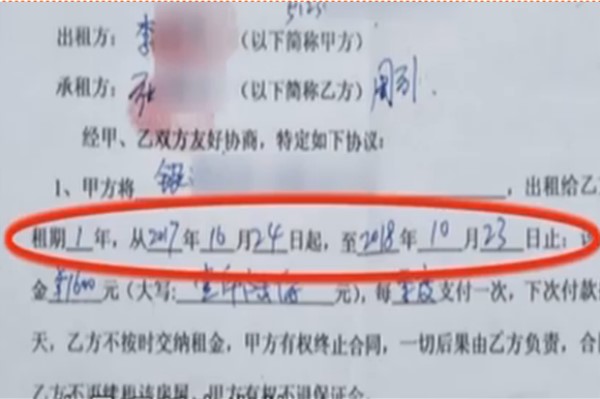 出租方：李（以下简称甲方）
承租方：（以下简称乙方）周引.
经甲、乙双方友好协商，特定如下协议：
1、甲方将 银，出租给乙
租期1年，从2017年10月24日起，至2018年10月23日止；
金¥1600元（大写：壹仟陆佰元），每季度支付一次，下次付款
天，乙方不按时交纳租金，甲方有权终止合同，一切后果由乙方负责，合
乙方不再续租该房屋，甲方有权不退保证金。